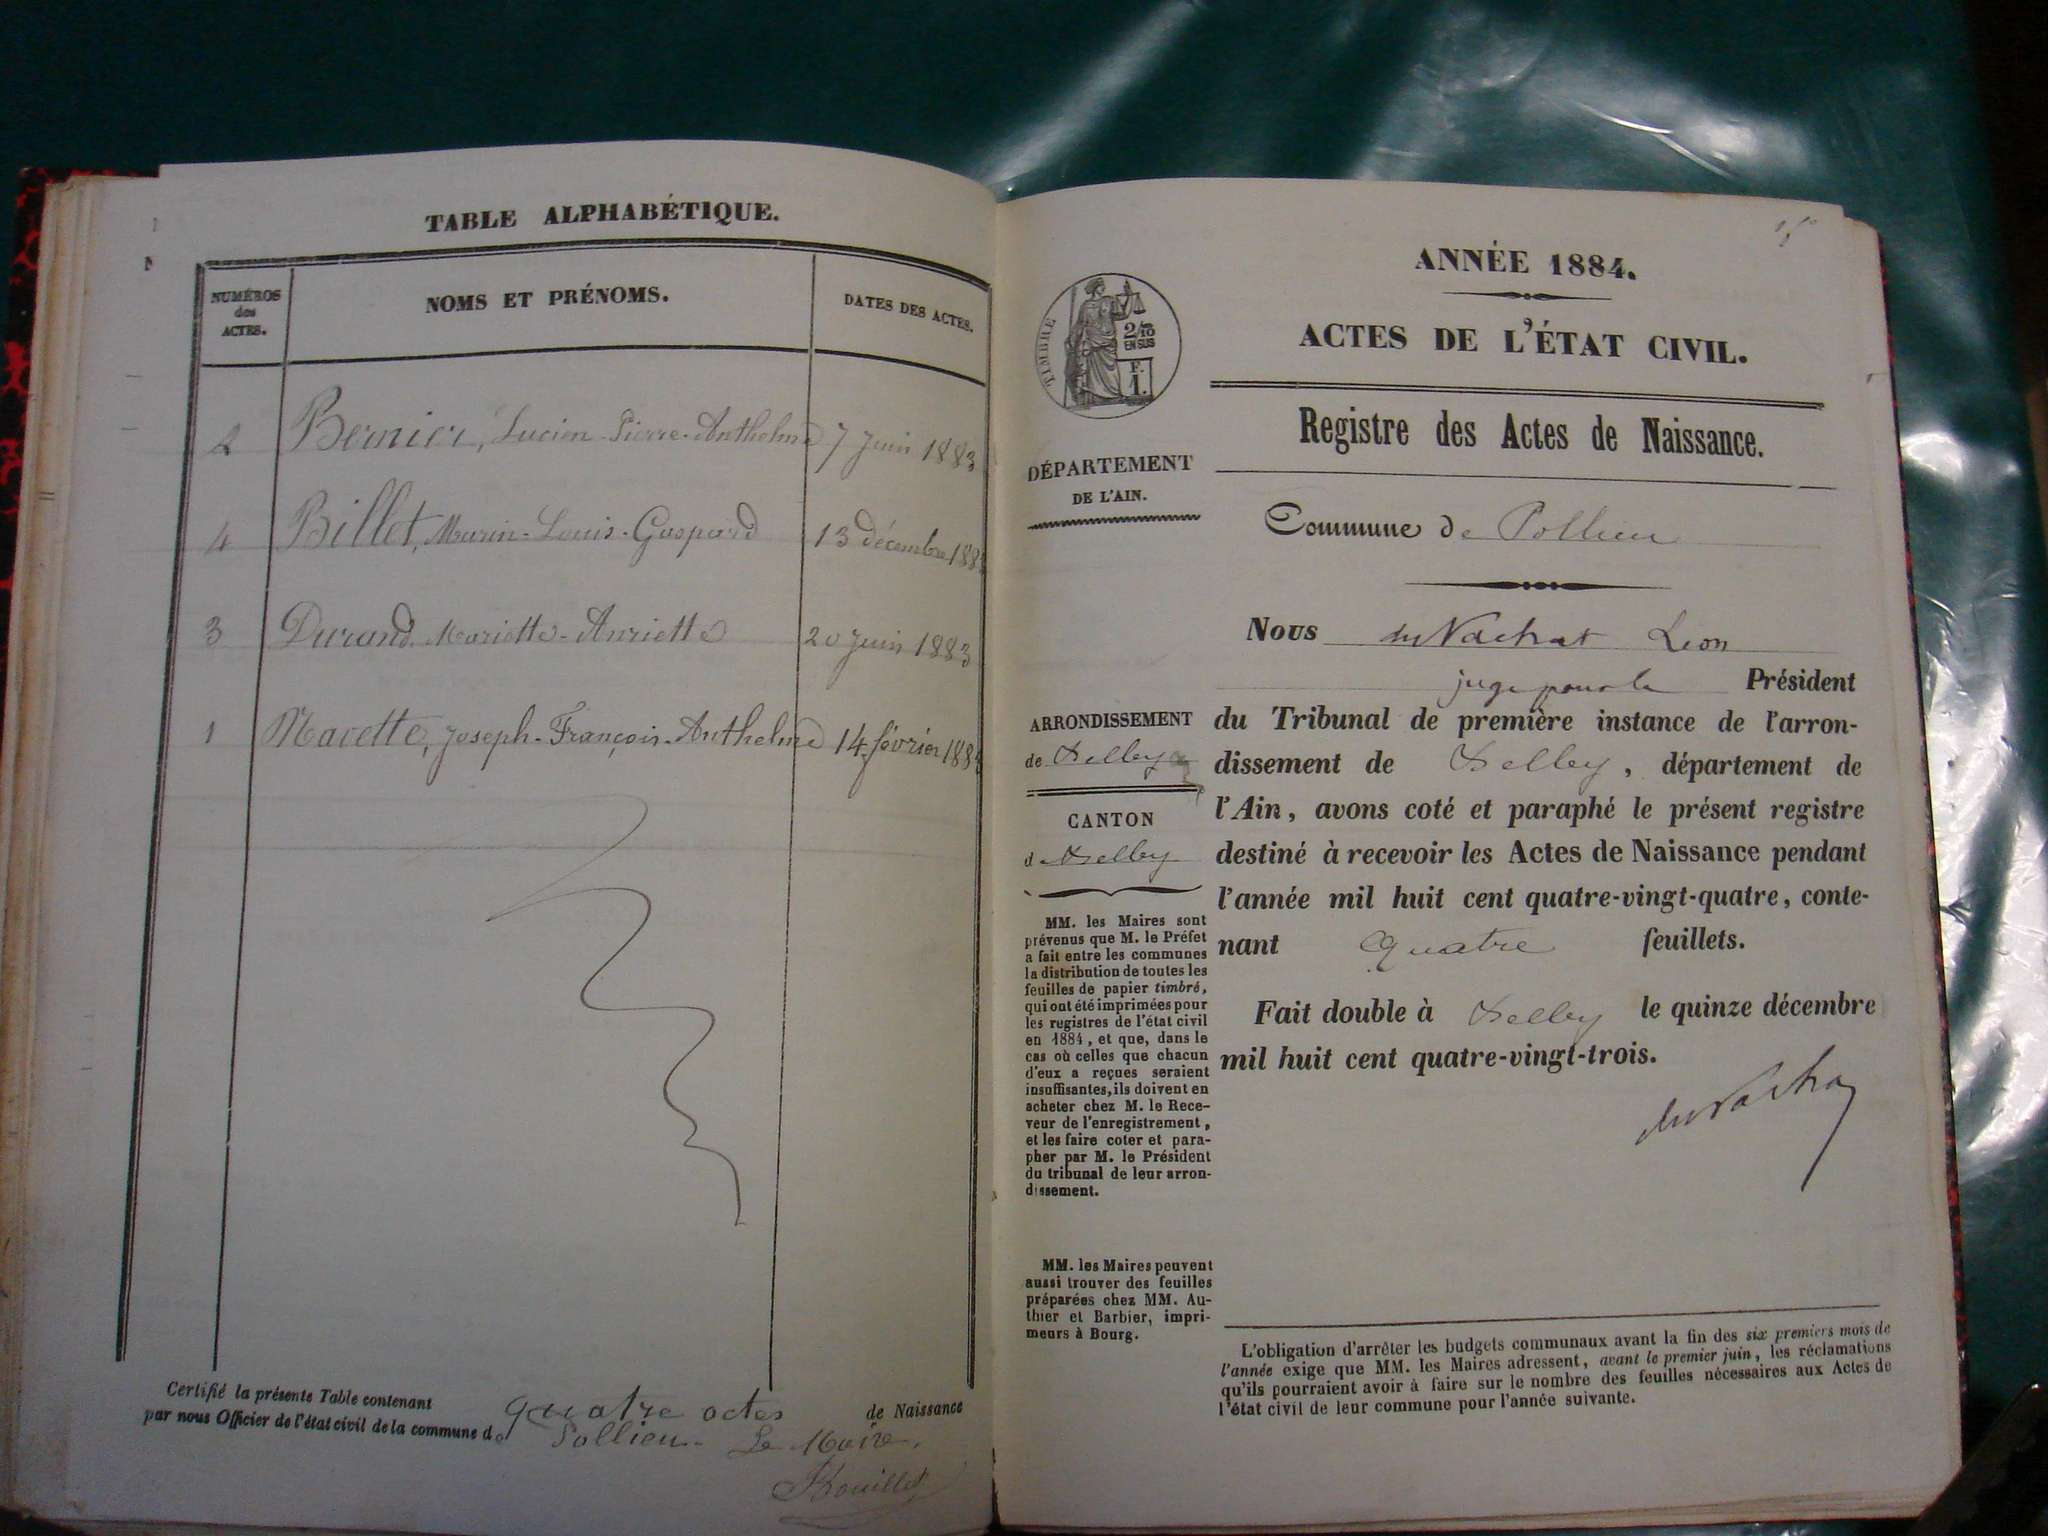 TABLE ALPHABÉTIQUE.
NUMÉROS
des
ACTES.
NOMS ET PRÉNOMS.
DATES DES ACTES.
2 Bernier, Lucien-Pierre-Anthelme 7 Juin 1883
4 Billet, Marin-Louis-Gaspard 13 décembre 1883
3 Durand Mariette-Anriette 20 Juin 1883
1 Mavette, Joseph-François-Anthelme 14 février 1883
Certifié la présente Table contenant quatre actes de Naissance
par nous Officier de l'état civil de la commune de Pollieu. Le Maire,
ANNÉE 1884.
ACTES DE L'ÉTAT CIVIL.
TIMBRE
2/10
EN SUS
F.
1.
Registre des Actes de Naissance.
DÉPARTEMENT
DE L'AIN.
Commune de Pollieu
Nous Léon
juge pour le Président
du Tribunal de première instance de l'arron-
dissement de Belley, département de
l'Ain, avons coté et paraphé le présent registre
destiné à recevoir les Actes de Naissance pendant
l'année mil huit cent quatre-vingt-quatre, conte-
nant Quatre feuillets.
Fait double à Belley le quinze décembre
mil huit cent quatre-vingt-trois.
ARRONDISSEMENT
de Belley
CANTON
de Belley
MM. les Maires sont
prévenus que M. le Préfet
a fait entre les communes
la distribution de toutes les
feuilles de papier timbré,
qui ont été imprimées pour
les registres de l'état civil
en 1884, et que, dans le
cas où celles que chacun
d'eux a reçues seraient
insuffisantes, ils doivent en
acheter chez M. le Rece-
veur de l'enregistrement,
et les faire coter et para-
pher par M. le Président
du tribunal de leur arron-
dissement.
MM. les Maires peuvent
aussi trouver des feuilles
préparées chez MM. Au-
thier et Barbier, impri-
meurs à Bourg.
L'obligation d'arrêter les budgets communaux avant la fin des six premiers mois de
l'année exige que MM. les Maires adressent, avant le premier juin, les réclamations
qu'ils pourraient avoir à faire sur le nombre des feuilles nécessaires aux Actes de
l'état civil de leur commune pour l'année suivante.